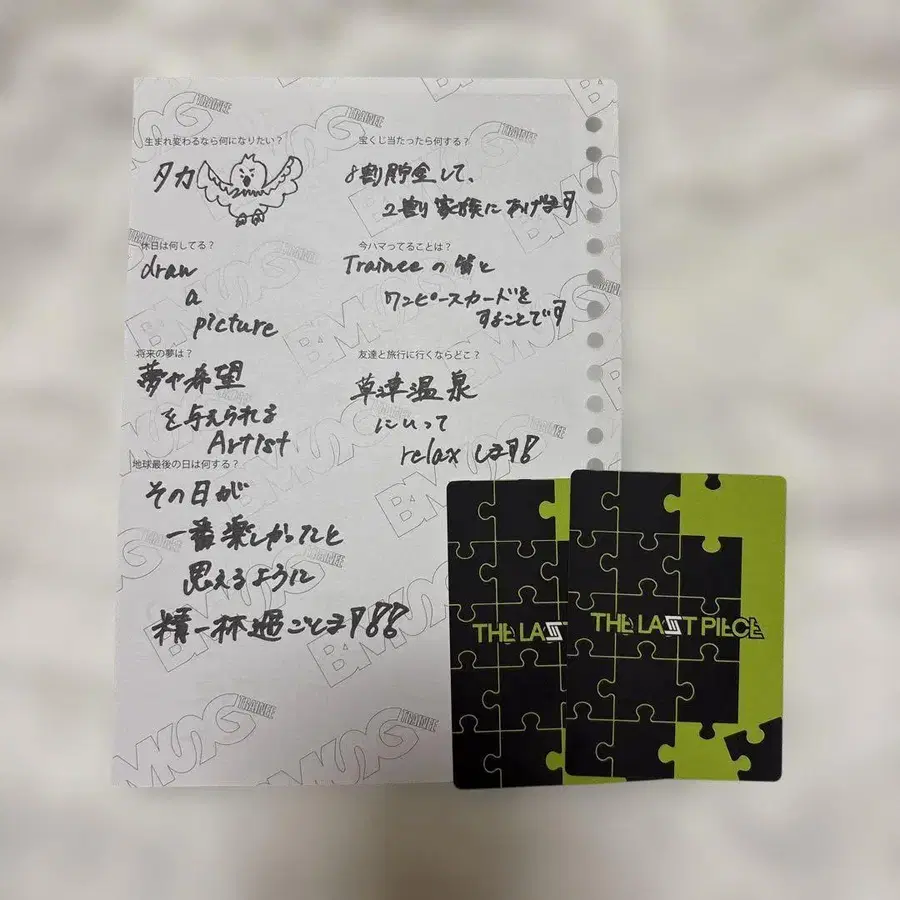 生まれ変わるなら何になりたい?
タカ
宝くじ当たったら何する?
8割貯金して、
2割家族にあげます
休日は何してる?
draw
a
picture
今ハマってることは?
Traineeの皆と
ワンピースカードを
することです
将来の夢は?
夢や希望
を与えられる
Artist
友達と旅行に行くならどこ?
草津温泉
にいって
relaxします!!
地球最後の日は何する?
その日が
一番楽しかったと
思えるように
精一杯過ごします!!!
THE LAS
THE LAST PIECE
BMSG TRAINEE